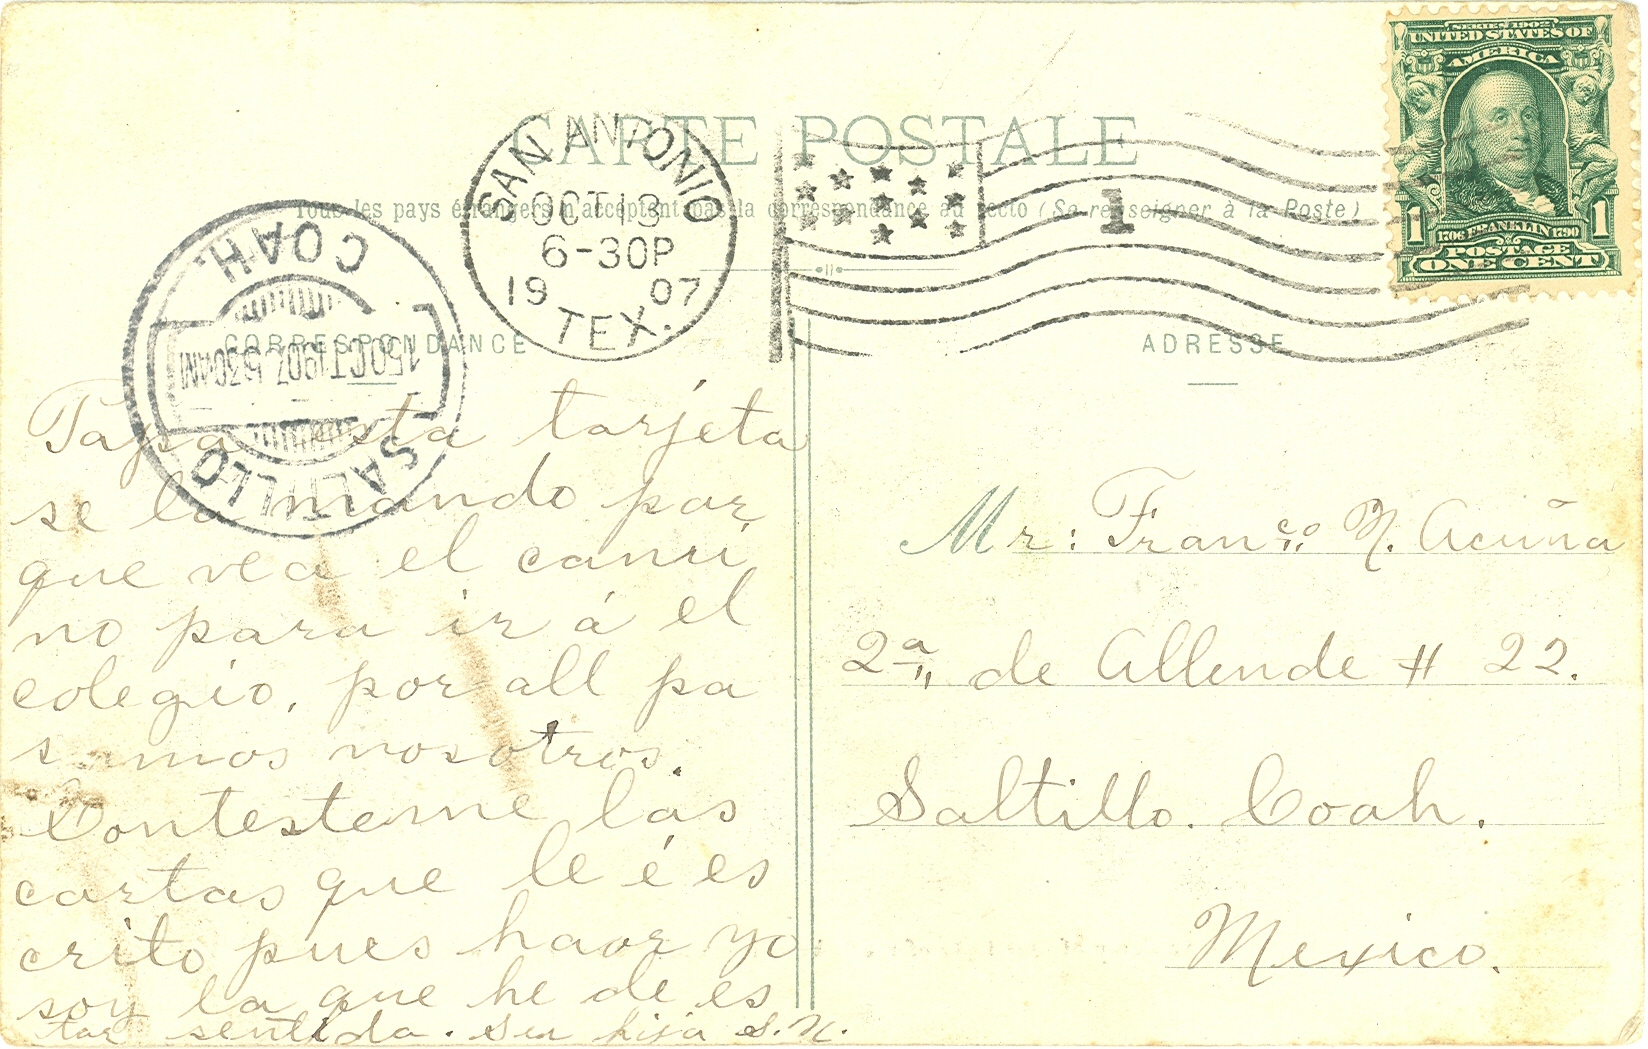 CARTE POSTALE
Tous les pays étrangers n'acceptent pas la correspondance au recto (Se renseigner à la Poste)
SAN ANTONIO
OCT 13
6-30P
19 07
TEX.
1
SERIES 1902
UNITED STATES OF
AMERICA
1 1706 FRANKLIN 1790 1
POSTAGE
ONE CENT
COAH.
15 OCT 1907 530AM
SALTILLO
CORRESPONDANCE
Papa esta tarjeta
se la mando por
que vea el cami
no para ir á el
colegio, por all pa
samos nosotros.
Contesteme las
cartas que le é es
crito pues haor yo
soy la que he de es
tar sentida. Su hija S.N.
ADRESSE
Mr: Franco N. Acuña
2a de Allende # 22.
Saltillo. Coah.
Mexico.